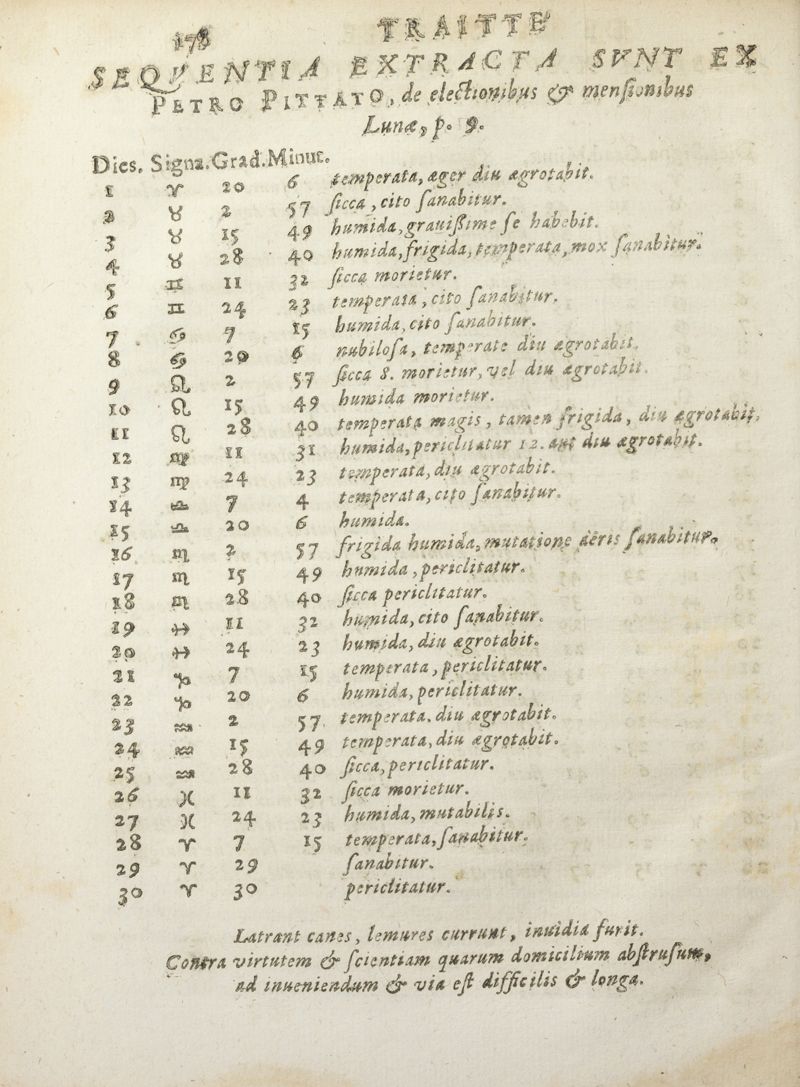 178 TRAITTÉ
SEQVENTIA EXTRACTA SVNT EX
PETRO PITTATO, de electionibus & mensionibus
Lunæ, p. 9.
Dies. Signa. Grad. Minut.
1 ♈ 20 6 temperata, æger diu ægrotabit.
2 ♉ 2 57 ſicca, cito ſanabitur.
3 ♉ 15 49 humida, grauiſſime ſe habebit.
4 ♉ 28 40 humida, frigida, temperata, mox ſanabitur.
5 ♊ 11 32 ſicca morietur.
6 ♊ 24 23 temperata, cito ſanabitur.
7 ♋ 7 15 humida, cito ſanabitur.
8 ♋ 20 6 nubiloſa, temperate diu ægrotabit.
9 ♌ 2 57 ſicca 8. morietur, vel diu ægrotabit.
10 ♌ 15 49 humida morietur.
11 ♌ 28 40 temperata magis, tamen frigida, diu ægrotabit.
12 ♍ 11 31 humida, periclitatur 12. aut diu ægrotabit.
13 ♍ 24 23 temperata, diu ægrotabit.
14 ♎ 7 4 temperata, cito ſanabitur.
15 ♎ 20 6 humida.
16 ♏ 2 57 frigida humida, mutatione aëris ſanabitur.
17 ♏ 15 49 humida, periclitatur.
18 ♏ 28 40 ſicca periclitatur.
19 ♐ 11 32 humida, cito ſanabitur.
20 ♐ 24 23 humida, diu ægrotabit.
21 ♑ 7 15 temperata, periclitatur.
22 ♑ 20 6 humida, periclitatur.
23 ♒ 2 57 temperata. diu ægrotabit.
24 ♒ 15 49 temperata, diu ægrotabit.
25 ♒ 28 40 ſicca, periclitatur.
26 ♓ 11 32 ſicca morietur.
27 ♓ 24 23 humida, mutabilis.
28 ♈ 7 15 temperata, ſanabitur.
29 ♈ 29 ſanabitur.
30 ♈ 30 periclitatur.
Latrant canes, lemures currunt, inuidia furit.
Contra virtutem & ſcientiam quarum domicilium abſtruſum,
ad inueniendum & via eſt difficilis & longa.